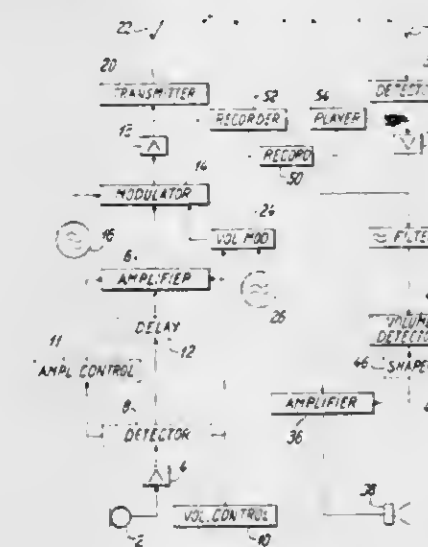 22
20
TRANSMITTER
52
56
DETECTO
RECORDER
PLAYER
RECORD
50
14
MODULATOR
24
16
VOL MOD
FILTE
6
AMPLIFIER
26
DELAY
12
VOLUME
DETECTO
11
AMPL CONTROL
46
SHAPE
8
AMPLIFIER
DETECTOR
36
4
38
2
VOL. CONTROL
10